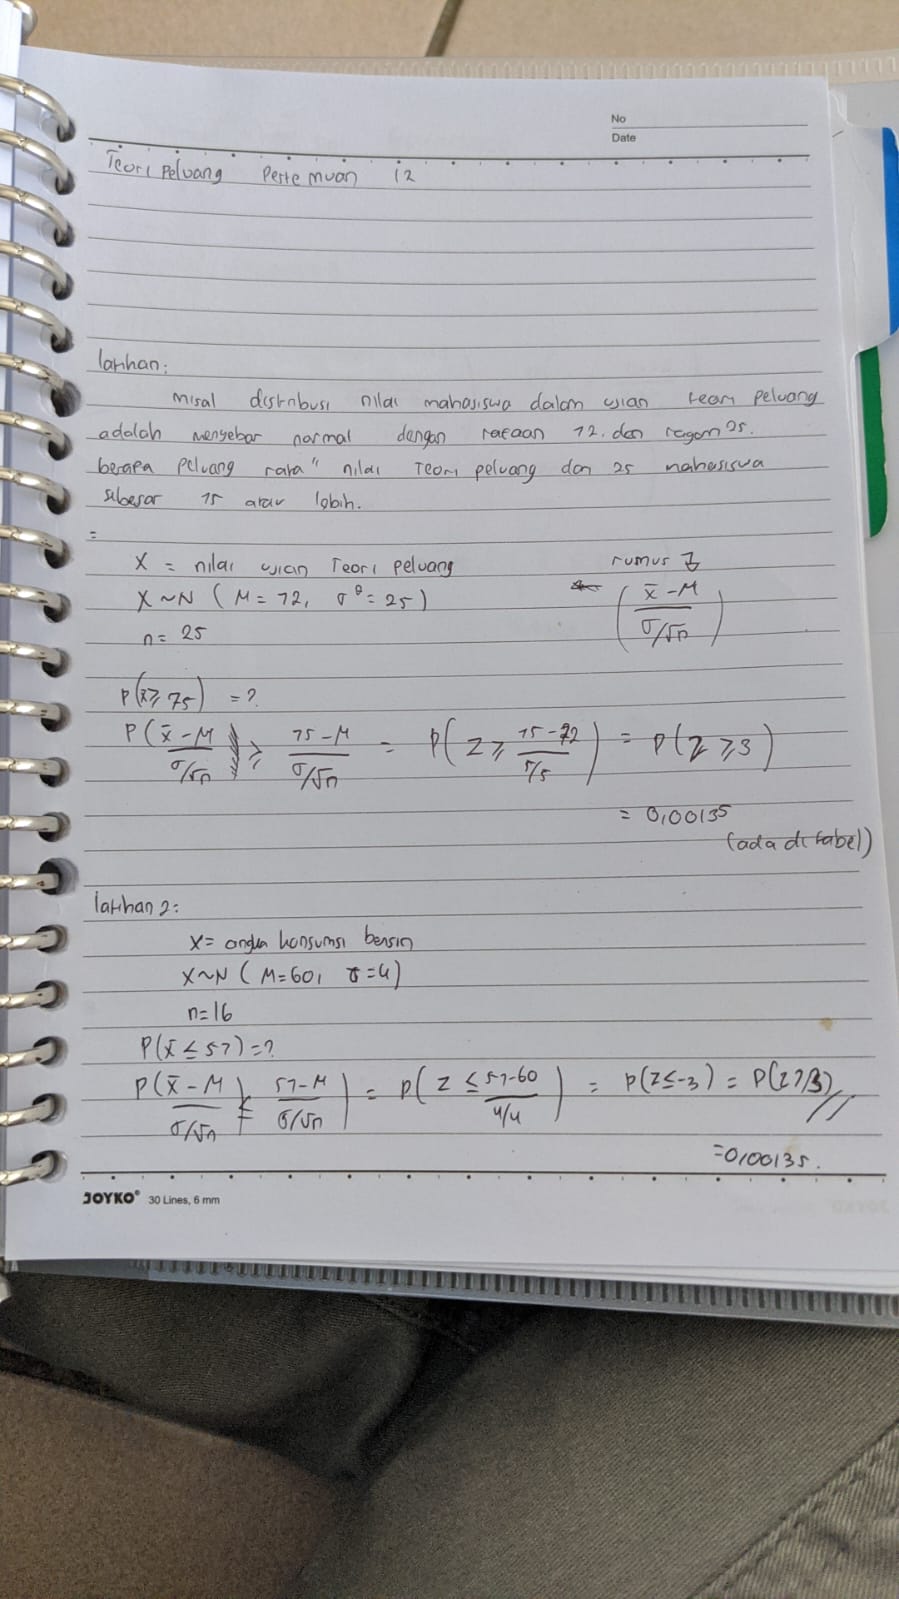 No
Date
Teori Peluang Pertemuan 12
latihan:
misal distribusi nilai mahasiswa dalam ujian teori peluang
adalah menyebar normal dengan rataan 72. dan ragam 25.
berapa peluang rata" nilai Teori peluang dari 25 mahasiswa
sebesar 75 atau lebih.
=
X = nilai ujian Teori peluang
rumus Z
X ~ N ( M = 72, σ² = 25 )
( x̄ - M / σ/√n )
n = 25
P(x̄ ≥ 75) = ?
P( x̄ - M / σ/√n ≥ 75 - M / σ/√n = P( Z ≥ 75 - 72 / 5/5 ) = P( Z ≥ 3 )
= 0,00135
(ada di tabel)
latihan 2:
X = angka konsumsi bensin
X ~ N ( M = 60, σ = 4 )
n = 16
P(x̄ ≤ 57) = ?
P( x̄ - M / σ/√n ≤ 57 - M / σ/√n ) = P( Z ≤ 57-60 / 4/4 ) = P(Z ≤ -3) = P(Z ≥ 3)
= 0,00135.
JOYKO® 30 Lines, 6 mm